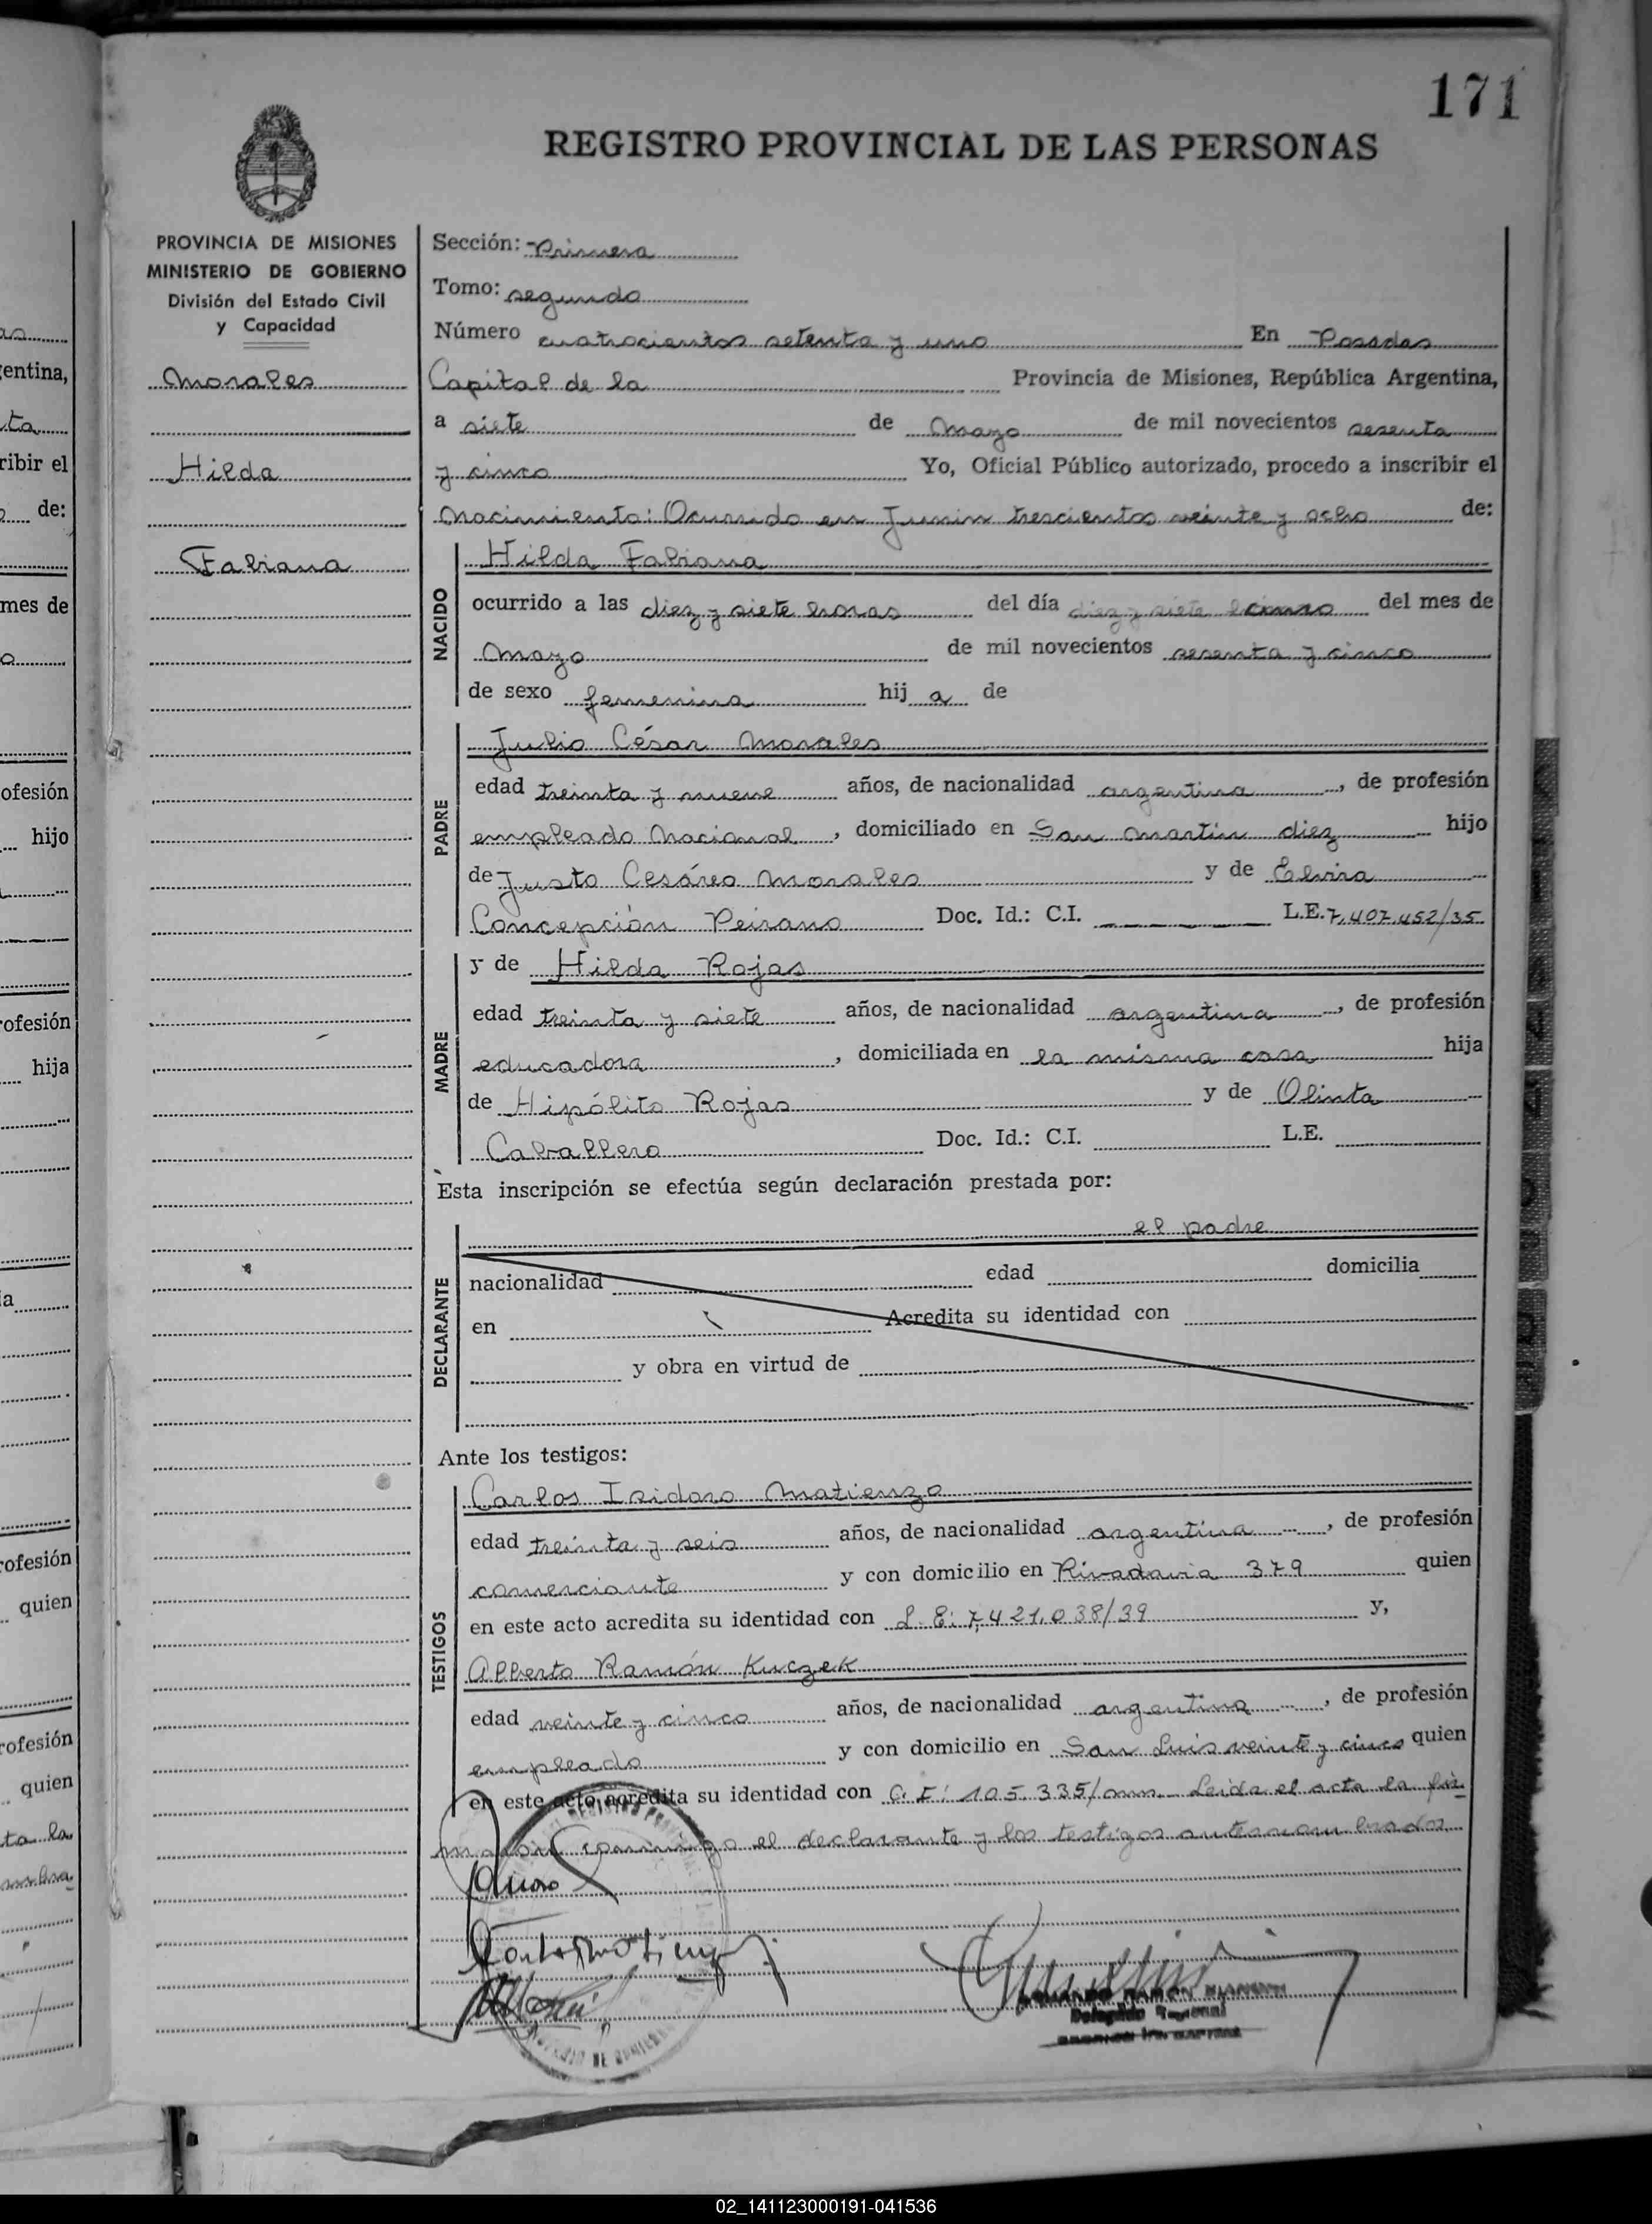 171
REGISTRO PROVINCIAL DE LAS PERSONAS
PROVINCIA DE MISIONES
MINISTERIO DE GOBIERNO
División del Estado Civil
y Capacidad
Morales
Hilda
Fabiana
Sección: Primera
Tomo: segundo
Número cuatrocientos setenta y uno En Posadas
Capital de la Provincia de Misiones, República Argentina,
a siete de Mayo de mil novecientos sesenta
y cinco Yo, Oficial Público autorizado, procedo a inscribir el
Nacimiento: Ocurrido en Junin trescientos veinte y ocho de:
NACIDO
Hilda Fabiana
ocurrido a las diez y siete horas del día cinco del mes de
Mayo de mil novecientos sesenta y cinco
de sexo femenino hij a de
PADRE
Julio César Morales
edad treinta y nueve años, de nacionalidad argentina, de profesión
empleado Nacional, domiciliado en San Martín diez hijo
de Justo Cesáreo Morales y de Elvira
Concepción Peirano Doc. Id.: C.I. L.E. 7.407.452/35
MADRE
y de Hilda Rojas
edad treinta y siete años, de nacionalidad argentina, de profesión
educadora, domiciliada en la misma casa hija
de Hipólito Rojas y de Olinta
Caballero Doc. Id.: C.I. L.E.
Esta inscripción se efectúa según declaración prestada por:
DECLARANTE
el padre
nacionalidad edad domicilia
en Acredita su identidad con
y obra en virtud de
Ante los testigos:
TESTIGOS
Carlos Isidoro Matienzo
edad treinta y seis años, de nacionalidad argentina, de profesión
comerciante y con domicilio en Rivadavia 379 quien
en este acto acredita su identidad con L.E: 7.421.038/39 y,
Alberto Ramón Kuczek
edad veinte y cinco años, de nacionalidad argentina, de profesión
empleado y con domicilio en San Luis veinte y cinco quien
en este acto acredita su identidad con C.I: 105.335/ Leída el acta la fir
man conmigo el declarante y los testigos antes nombrados
RAMON
Delegado Regional
02_141123000191-041536